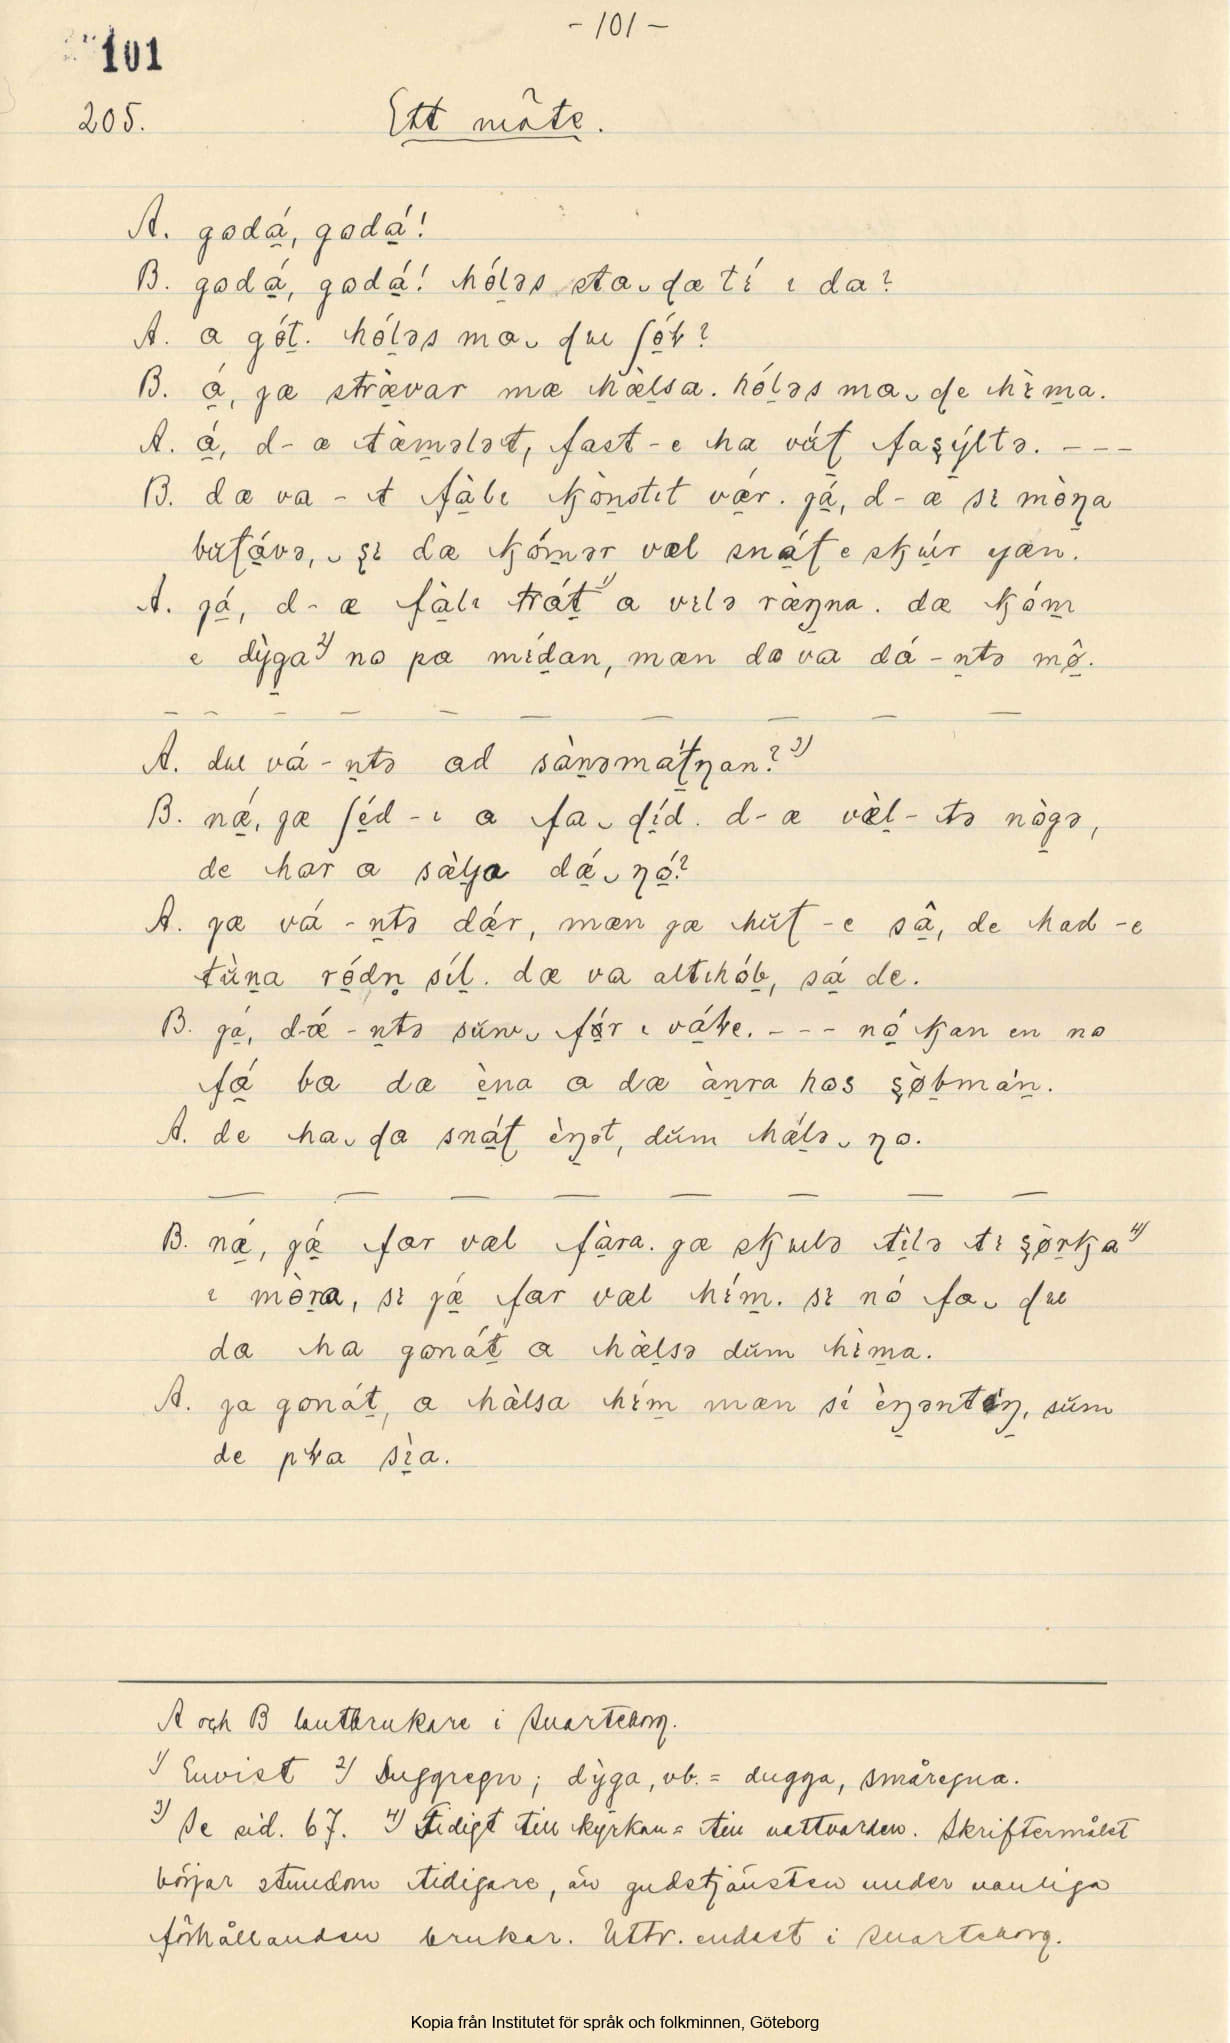 - 101 -
101
205. Ett möte.
A. godá̱, godá̱!
B. godá̱, godá̱! hó̱ləs sta ͜ ɖæ tí ı da?
A. a gó̱t. hó̱ləs ma ͜ ɖu ſó̱ɫv?
B. á̱, jæ stræ̱̀var mæ hæ̱̀lsa. hó̱ləs ma ͜ ɖe hì̱ma.
A. á̱, d-æ tæ̱̀mələt, fast-e ha vá̱ſ faşý̱ltə. - - -
B. dæ va-t fà̱lı kò̱nstıt vǽ̱r. já̱, d-æ sı mò̱ŋa
şı dæ kó̱mər væl sná̱ſ e jæn.
A. já̱, d-æ fà̱lı trá̱t ¹⁾ a vılə ræ̱̀ŋna. dæ kó̱m
e dỳ̱ga ²⁾ no pa mí̱dan, mæn do va dá-ṉtə mô̱.
A. du vá-ṉtə ad sà̱nəmá̱ſŋan? ³⁾
B. nǽ̱, jæ ſé̱d-ı a fa ͜ ɖí̱d. d-æ væ̱̀l-tə nò̱gə,
de har a sæ̱̀lja dǽ̱ ͜ ŋó̱?
A. jæ vá-ṉtə dǽ̱r, mæn jæ hŭſ-e sâ̱, de had-e
tù̱na ró̱dṇ síḻ. dæ va altıhó̱b, sá̱ de.
B. já̱, d-ǽ-ṉtə sŭm ͜ fǿ̱r ı vá̱ɫe. - - - nó̱ kan en no
fá̱ ba dæ è̱na a dæ à̱nra hos şø̱̀bmá̱n.
A. de ha ͜ ɖa sná̱ſ è̱ŋət, dŭm hǽ̱lə ͜ ŋo.
B. nǽ̱, jǽ̱ far væl fà̱ra. jæ skulə tì̱lə tı şø̱̀rka ⁴⁾
ı mò̱ra, sı jǽ̱ far væl hí̱m. sı nó fa ͜ ɖu
da ha goná̱t a hæ̱̀lsə dŭm hì̱ma.
A. ja goná̱t, a hælsa hí̱m mæn sí è̱ŋəntı̱ŋ, sŭm
de pɫa sì̱a.
A och B lantbrukare i Svarteborg.
¹⁾ Envist ²⁾ Duggregn; dỳga, vb. = dugga, småregna.
³⁾ Se sid. 67. ⁴⁾ Tidigt till kyrkan = till nattvarden. Skriftermålet
börjar stundom tidigare, än gudstjänsten under vanliga
förhållanden brukar. Uttr. endast i Svarteborg.
Kopia från Institutet för språk och folkminnen, Göteborg